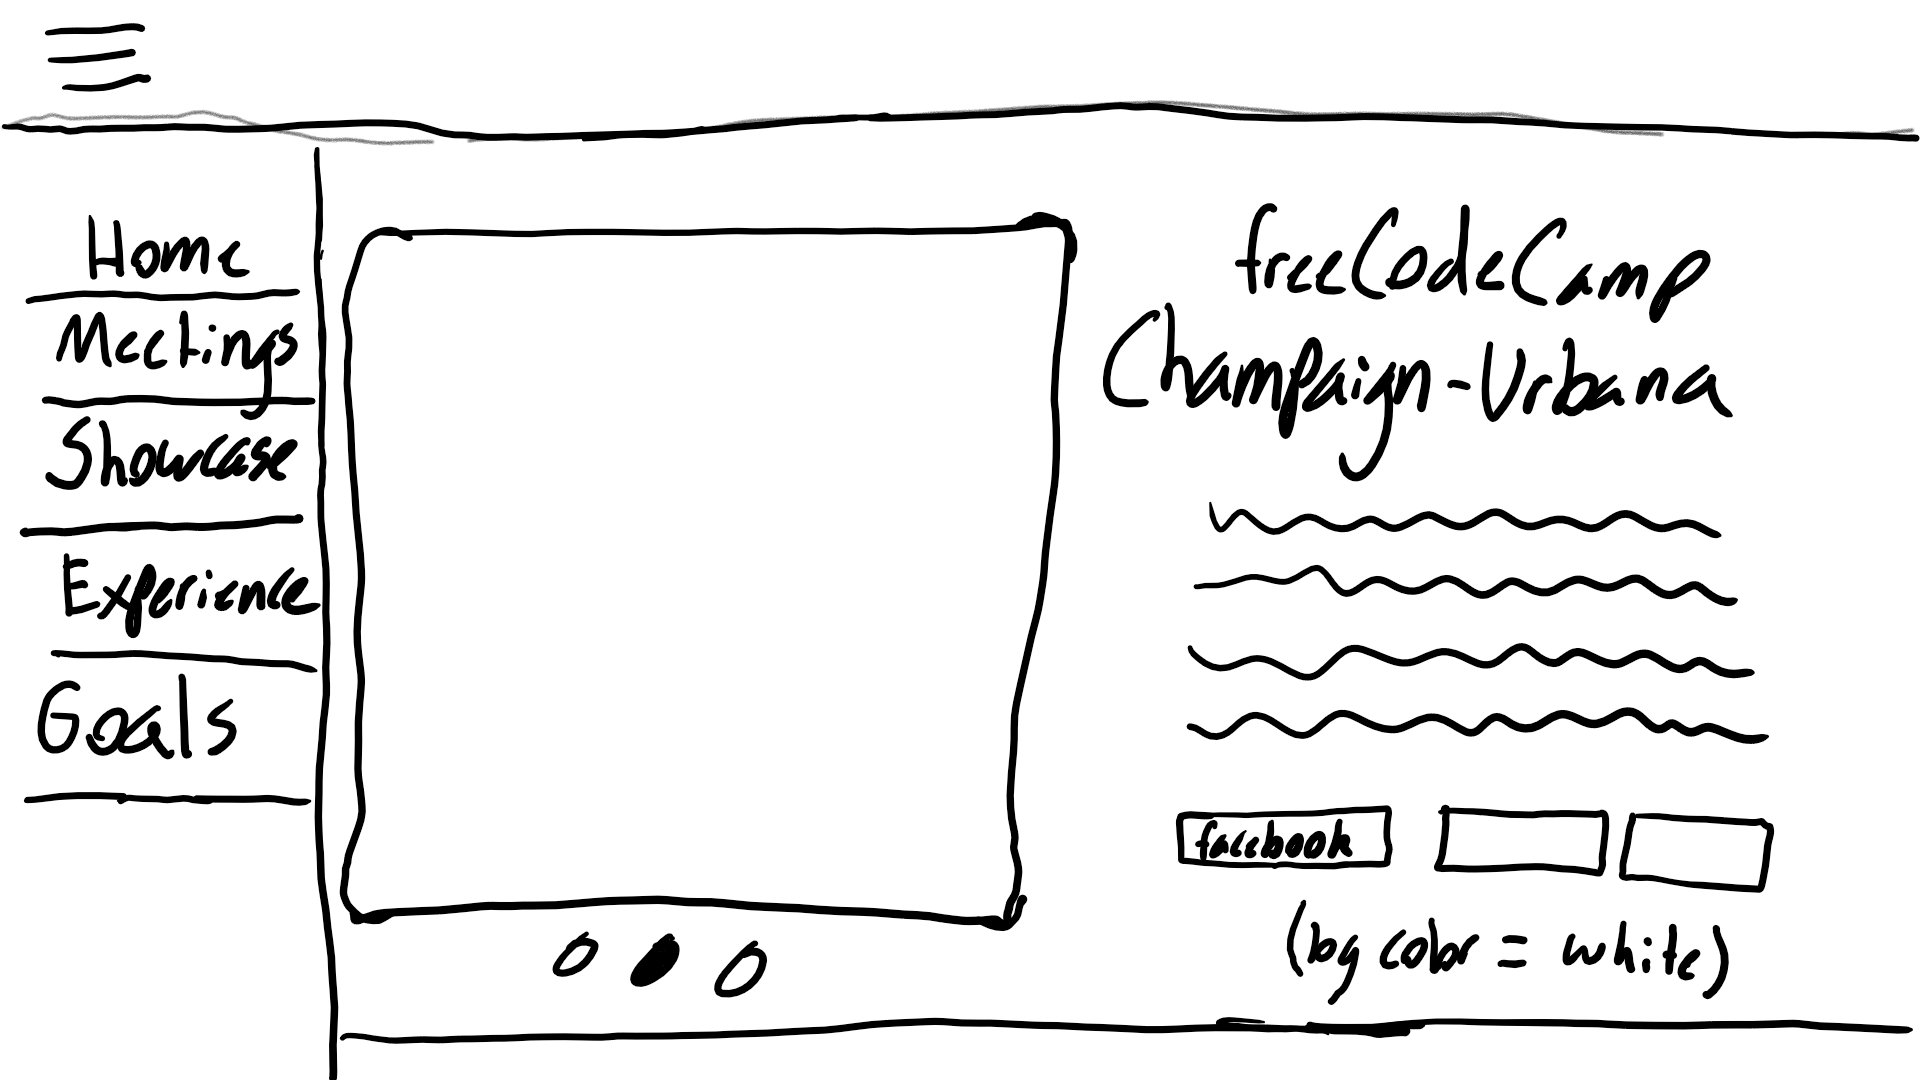 Home
Meetings
Showcase
Experience
Goals
freeCodeCamp
Champaign-Urbana
facebook
(bg color = white)